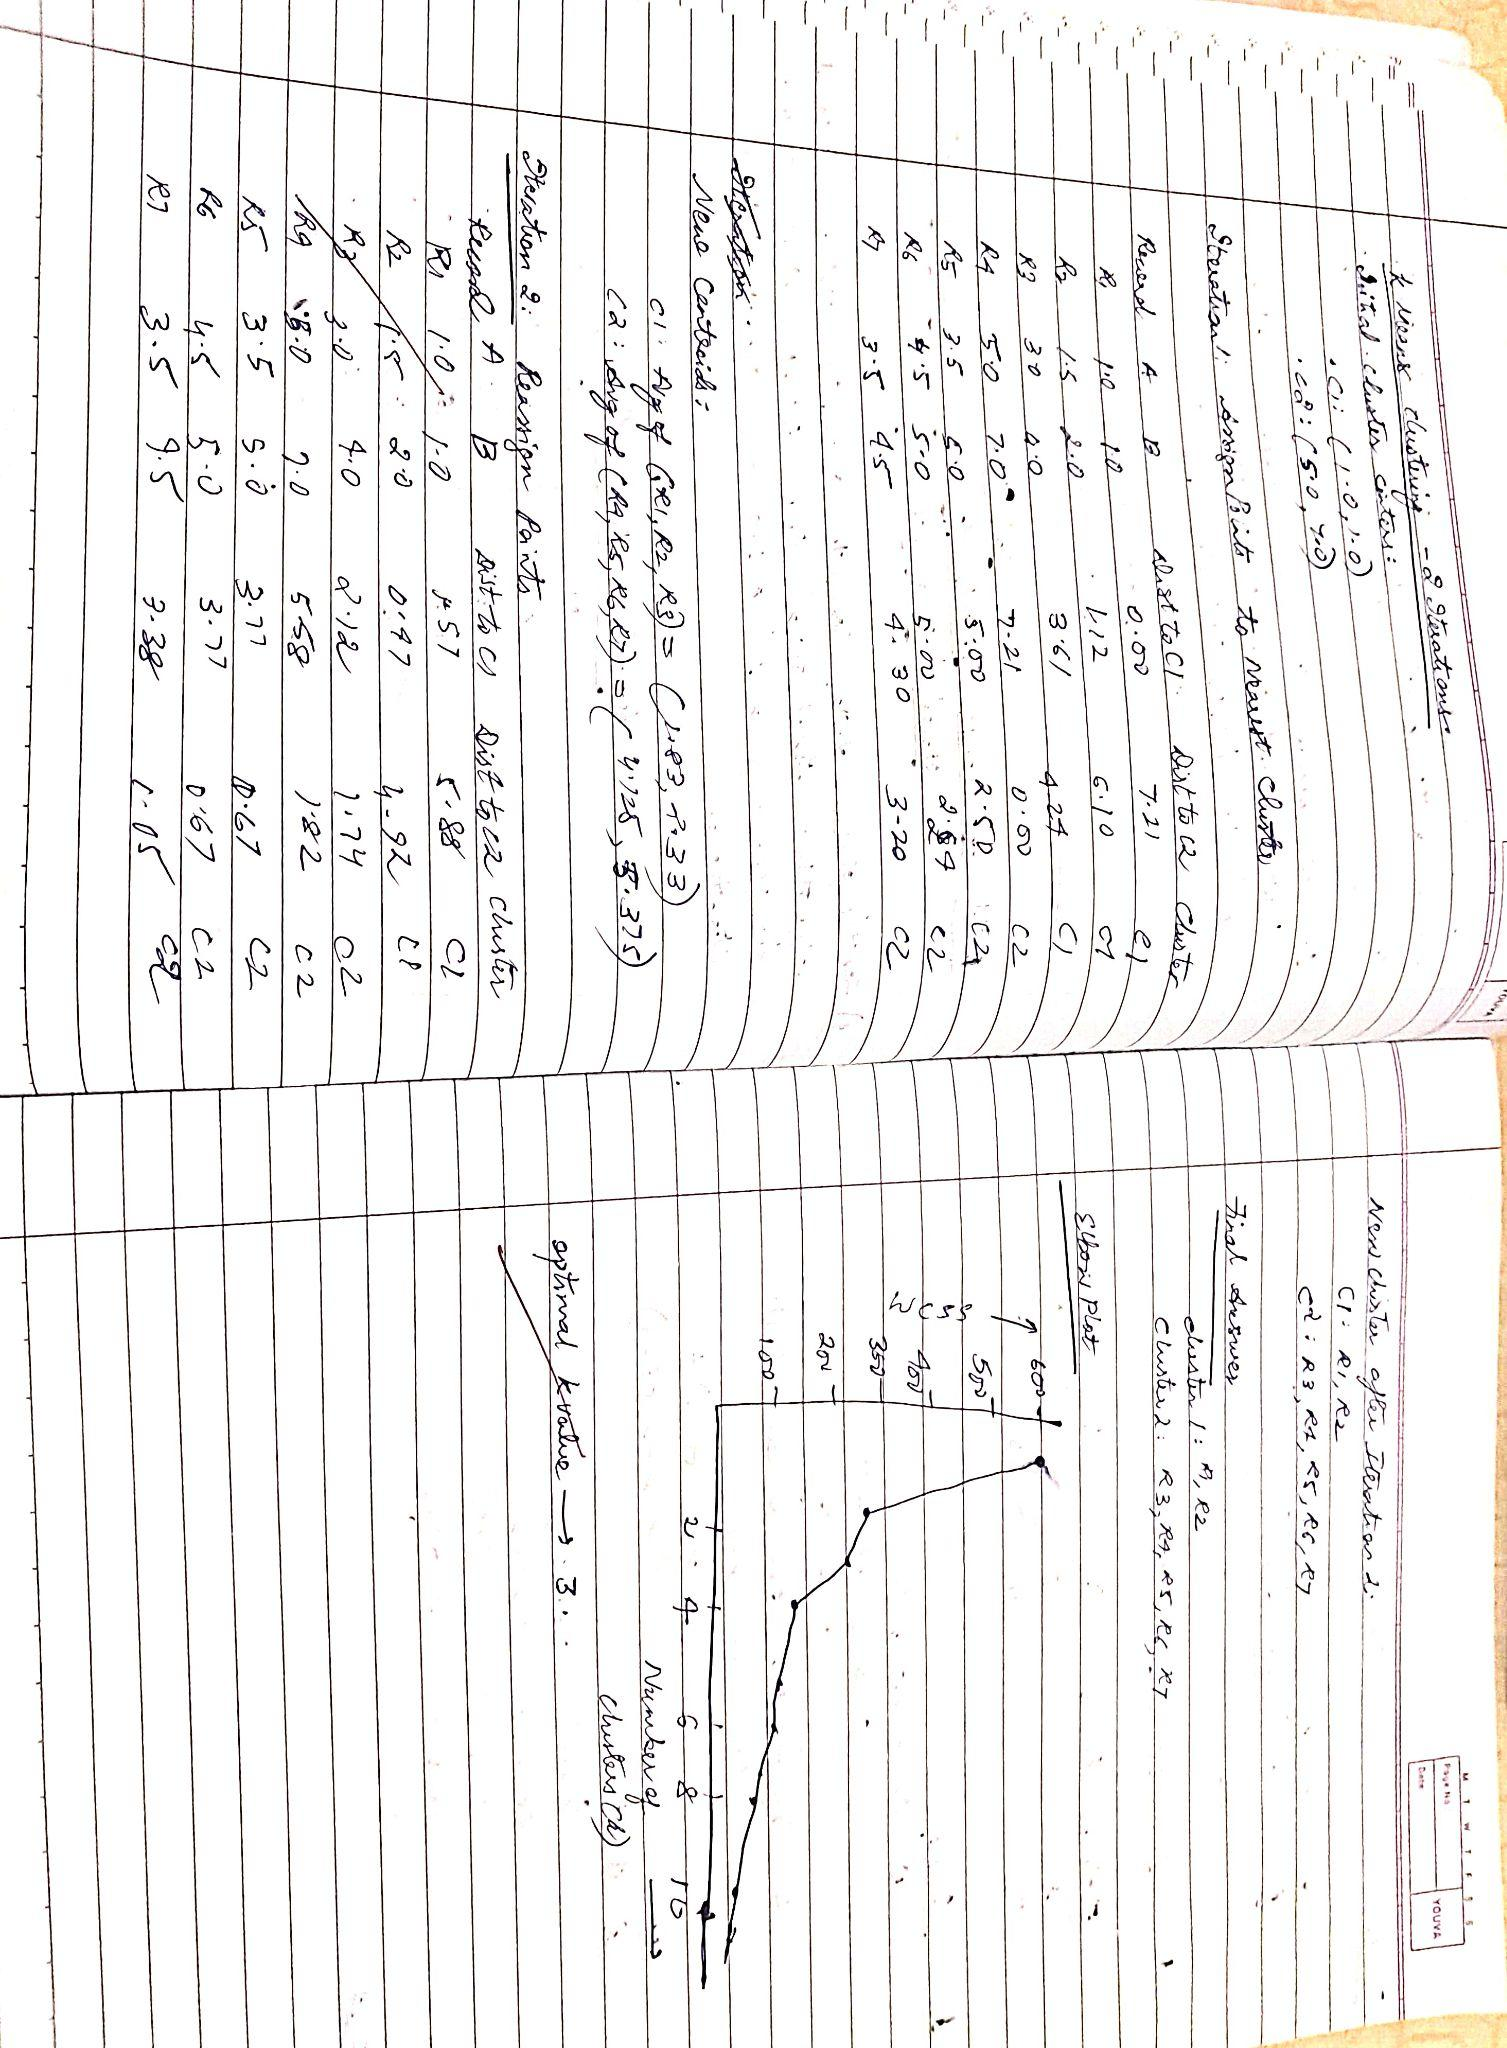 K Means clustering - 2 Iterations
Initial cluster centers:
. C1: (1.0, 1.0)
. C2: (5.0, 7.0)
Iteration 1: Assign Points to Nearest Cluster
Record A B Dist to C1 Dist to C2 Cluster
R1 1.0 1.0 0.00 7.21 C1
R2 1.5 2.0 1.12 6.10 C1
R3 3.0 4.0 3.61 4.24 C1
R4 5.0 7.0 7.21 0.00 C2
R5 3.5 5.0 5.00 2.50 C2
R6 4.5 5.0 5.00 C2
R7 3.5 4.5 4.30 3.20 C2
Iteration
New Centroids:
C1: Avg of (R1, R2, R3) = (1.83, 2.33)
C2: Avg of (R4, R5, R6, R7) = (4.125, 5.375)
Iteration 2: Reassign Points
Record A B Dist to C1 Dist to C2 Cluster
R1 1.0 1.0 1.57 5.88 C1
R2 1.5 2.0 0.47 4.92 C1
R3 3.0 4.0 2.12 1.74 C2
R4 5.0 7.0 5.58 1.82 C2
R5 3.5 5.0 3.77 0.67 C2
R6 4.5 5.0 3.77 0.67 C2
R7 3.5 4.5 1.05 C2
M T W T F S S
Page No
Date
YOUVA
New Cluster after Iteration 2.
C1: R1, R2
C2: R3, R4, R5, R6, R7
Final Answer
cluster 1: R1, R2
Cluster 2: R3, R4, R5, R6, R7
Elbow Plot
600
500
400
350
200
100
WCSS
2 4 6 8 10
Number of
clusters (k)
optimal k value → 3.